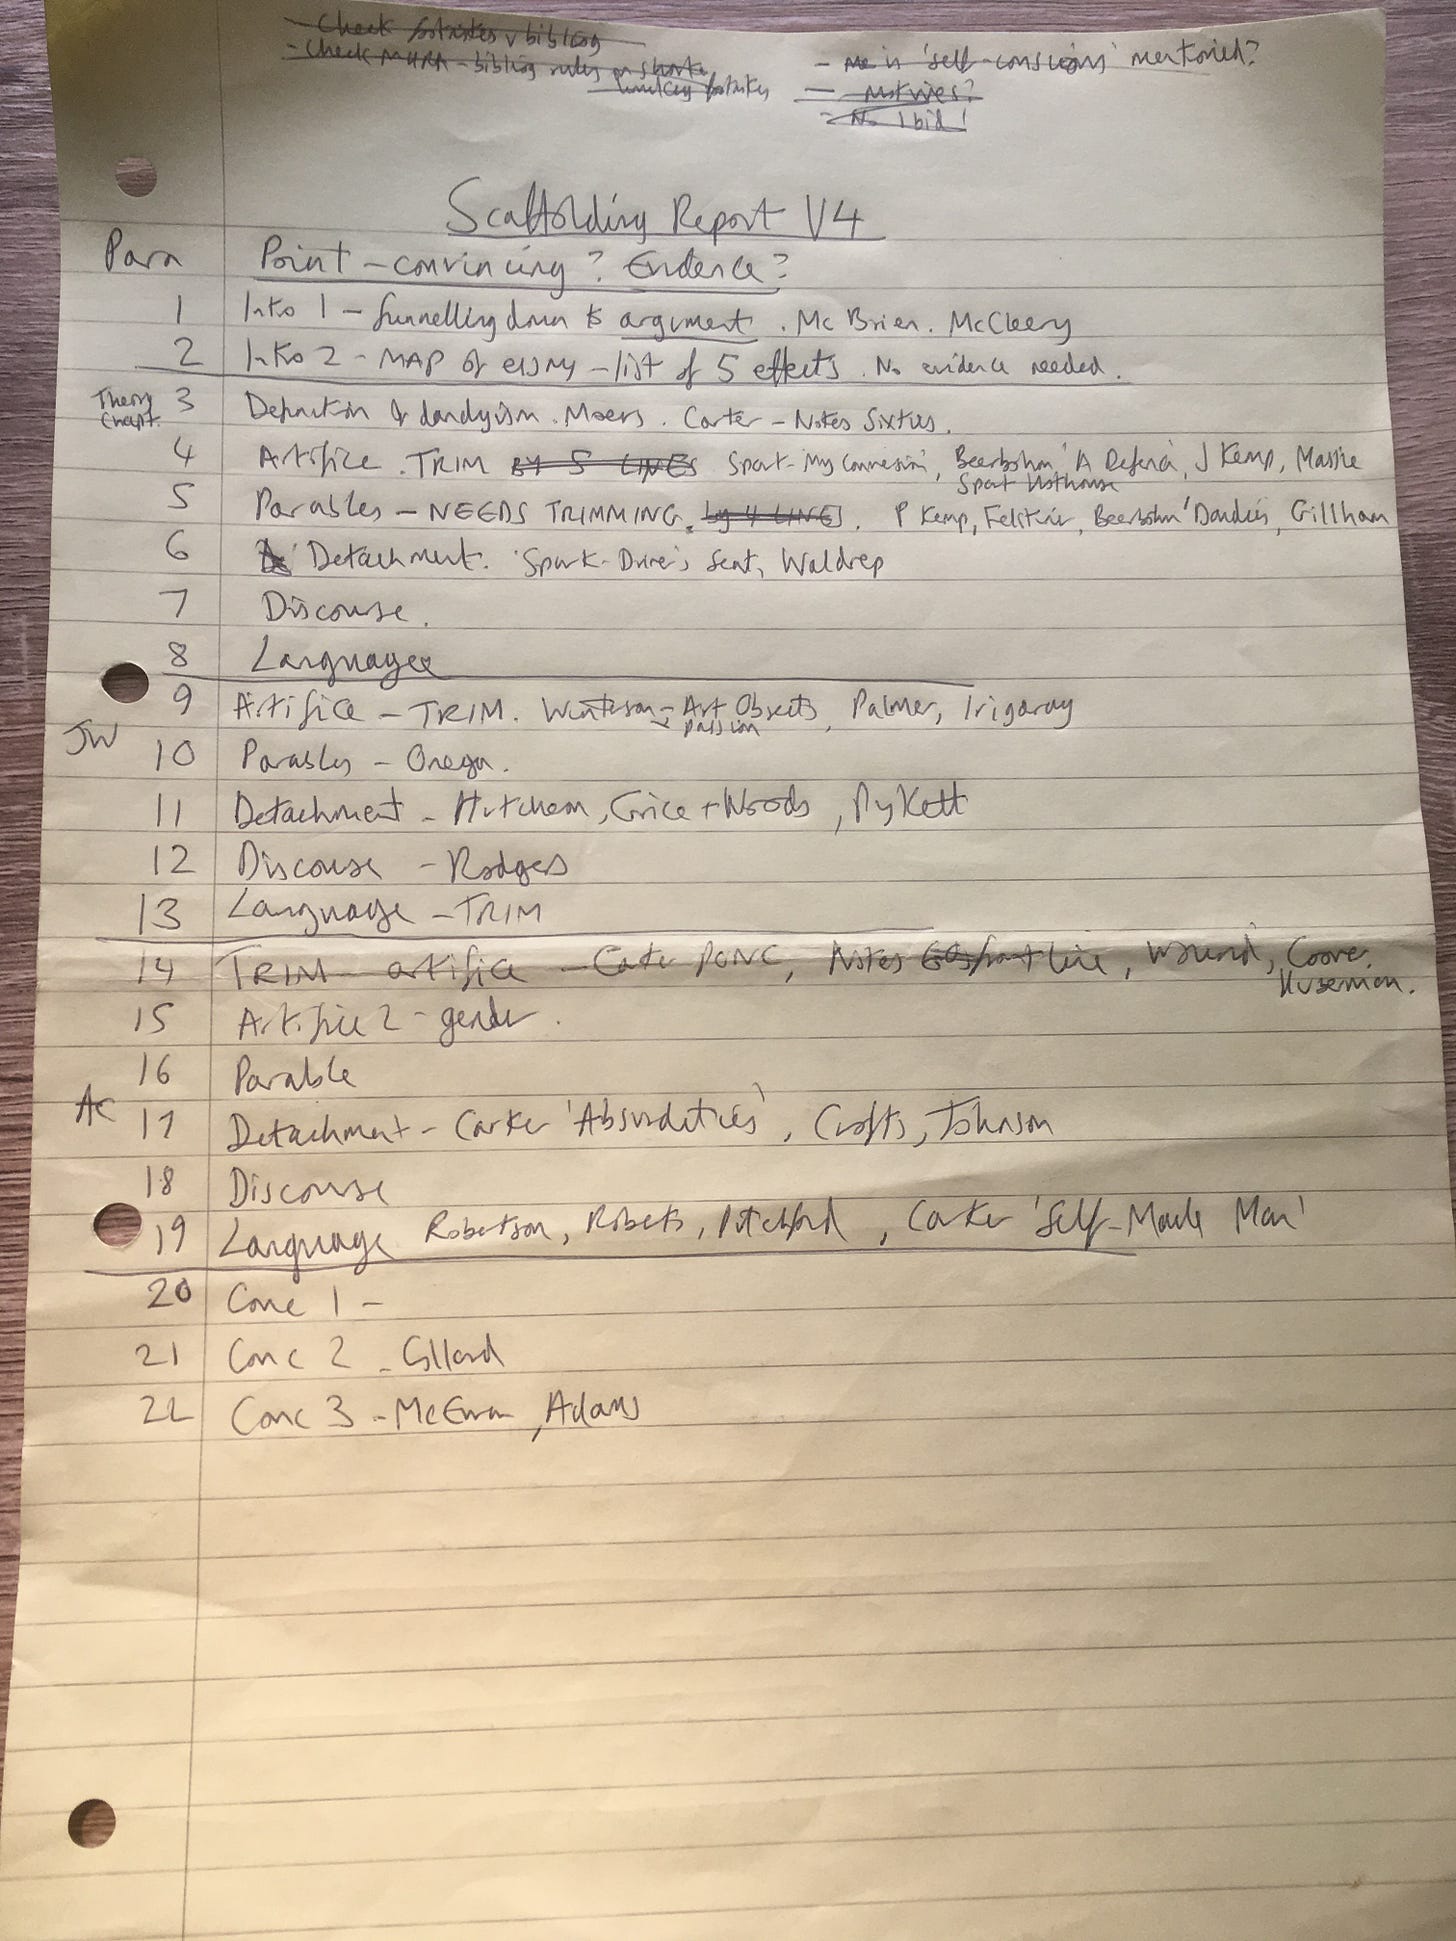 - Check footnotes v bibliog
- Check MHRA - bibliog rules on short
footnotes
- Me in 'self-conscious' mentioned?
- Motives?
- No Ibid!
Scaffolding Report V4
Para Point - convincing? Evidence?
1 Intro 1 - funnelling down to argument. McBrien. McCleery
2 Intro 2 - MAP of essay - list of 5 effects. No evidence needed.
Theory Chapt. 3 Definition of dandyism. Moers. Carter - Notes Sixties.
4 Artifice. TRIM BY 5 LINES Spark - 'My Conversion', Beerbohm 'A Defence', J Kemp, Massie
Spark Hothouse
5 Parables - NEEDS TRIMMING. by 4 LINES. P Kemp, Felstiner, Beerbohm 'Dandies', Gillham
6 Detachment. Spark - Driver's Seat, Waldrep
7 Discourse.
8 Language
9 Artifice - TRIM. Winterson - Art Objects, Palmer, Irigaray
Passion
JW
10 Parables - Onega.
11 Detachment - Hutcheon, Grice + Woods, Pykett
12 Discourse - Rodgers
13 Language - TRIM
14 TRIM artifice - Carter PONC, Notes Front line, Wound, Coover,
Huseman.
15 Artifice 2 - gender.
16 Parable
AC 17 Detachment - Carter 'Absurdities', Crofts, Johnson
18 Discourse
19 Language Robertson, Roberts, Pitchford, Carter 'Self-Made Man'
20 Conc 1 -
21 Conc 2 -
22 Conc 3 - McEwan, Adams